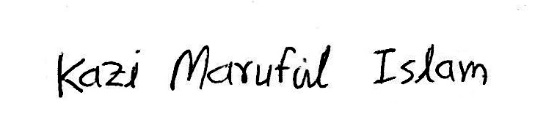 Kazi Maruful Islam